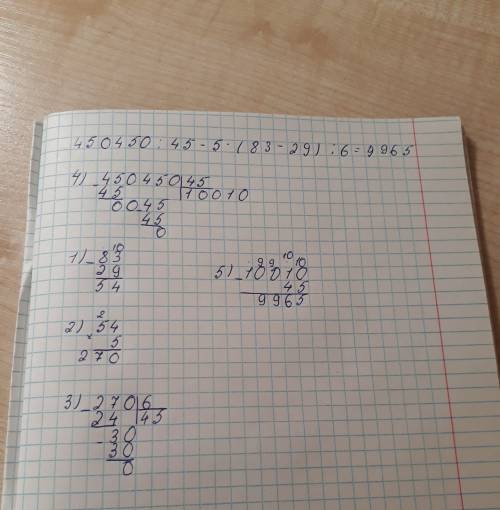 450450 : 45 - 5 · (83 - 29) : 6 = 9965
4) 450450 | 45
45 10010
0045
45
0
1) 10
- 83
29
54
5) 9 9 10 10
- 10010
45
9965
2) 2
54
× 5
270
3) - 270 | 6
24 45
- 30
30
0